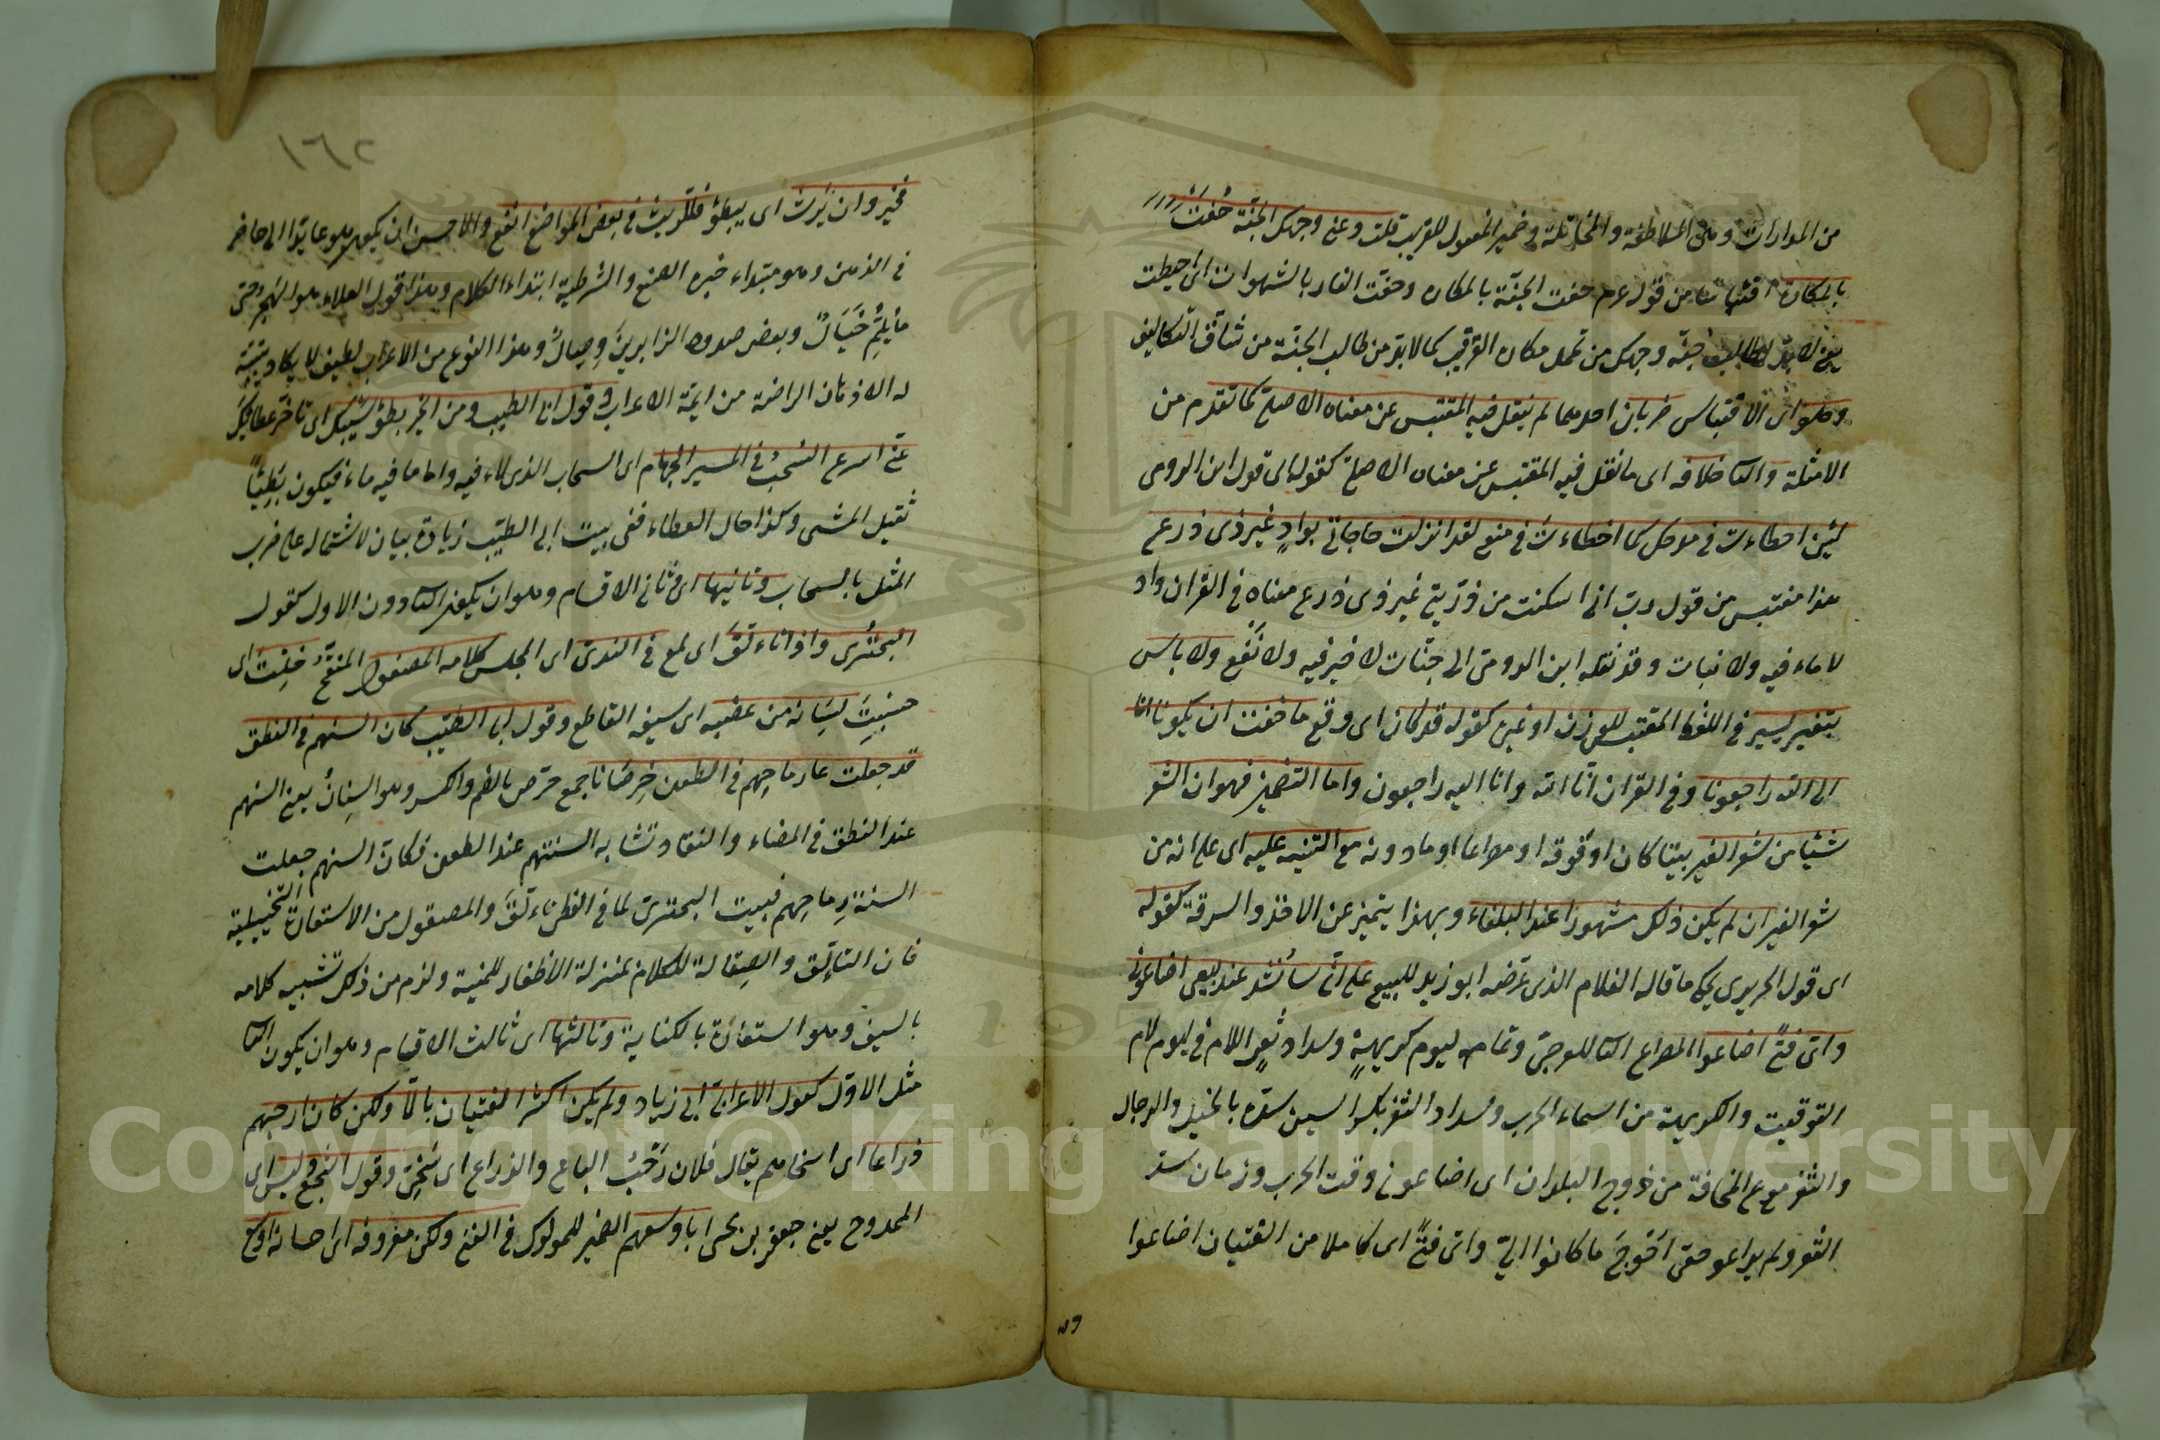 من المدارات وهى الملاطفة والمخاتلة وضمير المفعول للرقيب قلت دعنى وجهك الجنة حفت
بالمكاره اقتباسا من قوله عم حفت الجنة بالمكاره وحفت النار بالشهوات اى احيطت
يعنى لا بد لطالب جنة وجهك من تحمل مكاره الرقيب كما لا بد من طالب الجنة من مشاق التكاليف
وهو اى الاقتباس ضربان احدهما لم ينقل فيه المقتبس عن معناه الاصلى كما تقدم من
الامثلة والثا خلافه اى ما نقل فيه المقتبس عن معناه الاصلى كقوله اى قول ابن الرومى
لئن اخطاءت فى مدحك ما اخطاءت فى منعى لقد انزلت حاجاتى بواد غير ذى زرع
هذا مقتبس من قوله رب انى اسكنت من ذريتى بواد غير ذى زرع معناه فى القران واد
لا ماء فيه ولا نبات وقد نقله ابن الرومى الى جنات لا خير فيه ولا نفع ولا باس
بتغير يسير فى اللفظ المقتبس للوزن او غيره كقوله قد كان اى وقع ما خفت ان يكونا انا
الى الله راجعونا وفى القران انا لله وانا اليه راجعون واما التضمين فهو ان الشعر
شيئا من شعر الغير بيتا كان او فوقه او مصراعا او ما دونه مع التنبيه عليه اى على انه من
شعر الغير ان لم يكن ذلك مشهورا عند البلغاء وبهذا يتميز عن الاخذ والسرقة كقوله
اى قول الحريرى يحكى ما قاله الغلام الذى عرضه ابو زيد للبيع على انى سأنشد عند بيعى اضاعونى
واى فتى اضاعوا المصراع الثا للعرجى وتمامه ليوم كريهة وسداد ثغر اللام فى ليوم لام
التوقيت والكريهة من اسماء الحرب وسداد الثغر بكسر السين سده بالخيل والرجال
والثغر موضع المخافة من فروج البلدان اى اضاعونى وقت الحرب وزمان سد
الثغر ولم يراعوا حقى احوج ما كانوا الى واى فتى اى كاملا من الفتيان اضاعوا
١٦٢
فخير وان يرث اى يبطؤ فللريث فى بعض المواضع انفع والاحسن ان يكون هو عايدا الى حاضر
فى الذهن وهو مبتداء خبره الصنع والشرطية ابتداء الكلام وهذا كقول ابى العلاء هو الهجر حتى
ما يلم خيال وبعض صدود الزايرين وصال وهذا النوع من الاعراب لطيف لا يكاد يتنبه
له الا الاذهان الراضة من ايمة الاعراب وقول ابى الطيب ومن الخير بطؤ سيبك اى تاخر عطائك
عنى اسرع السحب فى المسير الجهام اى السحاب الذى لا ماء فيه واما ما فيه ماء فيكون بطيئا
ثقيل المشى وكذا حال العطاء ففى بيت ابى الطيب زيادة بيان لاشتماله على ضرب
المثل بالسحاب وثانيها اى ثانى الاقسام وهو ان يكون الثا دون الاول كقول
البحترى واذا تألق اى لمع فى الندى اى المجلس كلامه المصقول المنقح خلت اى
حسبت لسانه من عضبه اى سيفه القاطع وقول ابى الطيب كان السنهم فى النطق
قد جعلت على رماحهم فى الطعن خرصانا جمع خرص بالضم والكسر وهو السنان يعنى السنهم
عند النطق فى المضاء والنفاذ تشابه اسنتهم عند الطعن فكان السنهم جعلت
اسنة رماحهم فبيت البحترى لما فى لفظى تألق والمصقول من الاستعارة التخييلية
فان التألق والصقالة للكلام بمنزلة الاظفار للمنية ولزم من ذلك تشبيه كلامه
بالسيف وهو استعارة بالكناية وثالثها اى ثالث الاقسام وهو ان يكون الثا
مثل الاول كقول الاعرابى ابى زياد ولم يكن اكثر الفتيان مالا ولكن كان ارحبهم
ذراعا اى اسخاهم يقال فلان رحب الباع والذراع اى سخى وقول اشجع وليس اى
الممدوح يعنى جعفر بن يحيى باوسعهم الضمير للملوك فى الغنى ولكن معروفه اى احسانه اوسع